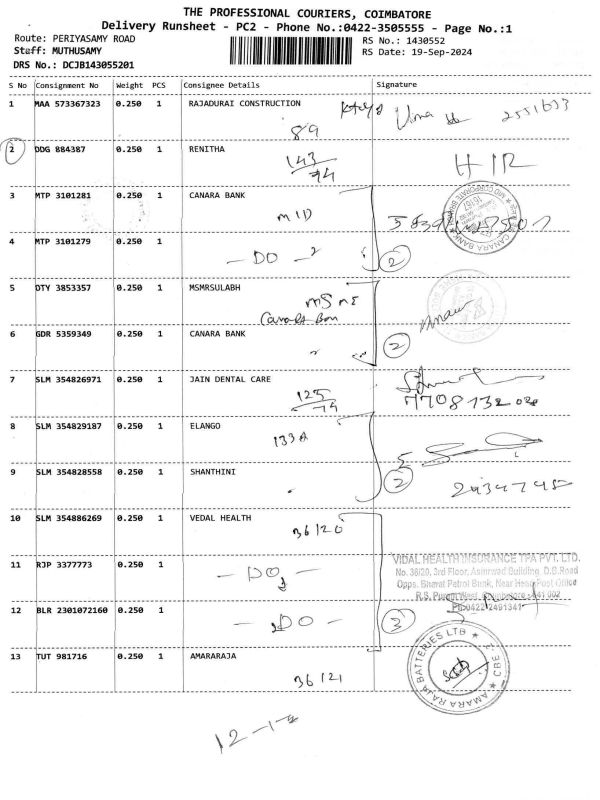 THE PROFESSIONAL COURIERS, COIMBATORE
Delivery Runsheet - PC2 - Phone No.:0422-3505555 - Page No.:1
Route: PERIYASAMY ROAD RS No.: 1430552
Staff: MUTHUSAMY RS Date: 19-Sep-2024
DRS No.: DCJB143055201
S No Consignment No Weight PCS Consignee Details Signature
1 MAA 573367323 0.250 1 RAJADURAI CONSTRUCTION
89
2 DDG 884387 0.250 1 RENITHA
143/74
3 MTP 3101281 0.250 1 CANARA BANK
MID
4 MTP 3101279 0.250 1
- DO - 2
2
5 DTY 3853357 0.250 1 MSMRSULABH
MSME
Canara Ban
6 GDR 5359349 0.250 1 CANARA BANK
2
7 SLM 354826971 0.250 1 JAIN DENTAL CARE
125/74
8 SLM 354829187 0.250 1 ELANGO
133A
9 SLM 354828558 0.250 1 SHANTHINI
2
10 SLM 354886269 0.250 1 VEDAL HEALTH
36/20
VIDAL HEALTH INSURANCE TPA PVT. LTD.
No. 36/20, 3rd Floor, Asirwad Building, D.B.Road
Opps. Bharat Patrol Bunk, Near Head Post Office
R.S. Puram West, Coimbatore - 641 002
Ph:0422-2491341
11 RJP 3377773 0.250 1
- DO -
12 BLR 2301072160 0.250 1
- DO -
3
13 TUT 981716 0.250 1 AMARARAJA
36/21
AMARA RAJA BATTERIES LTD ★ CBE-2 ★